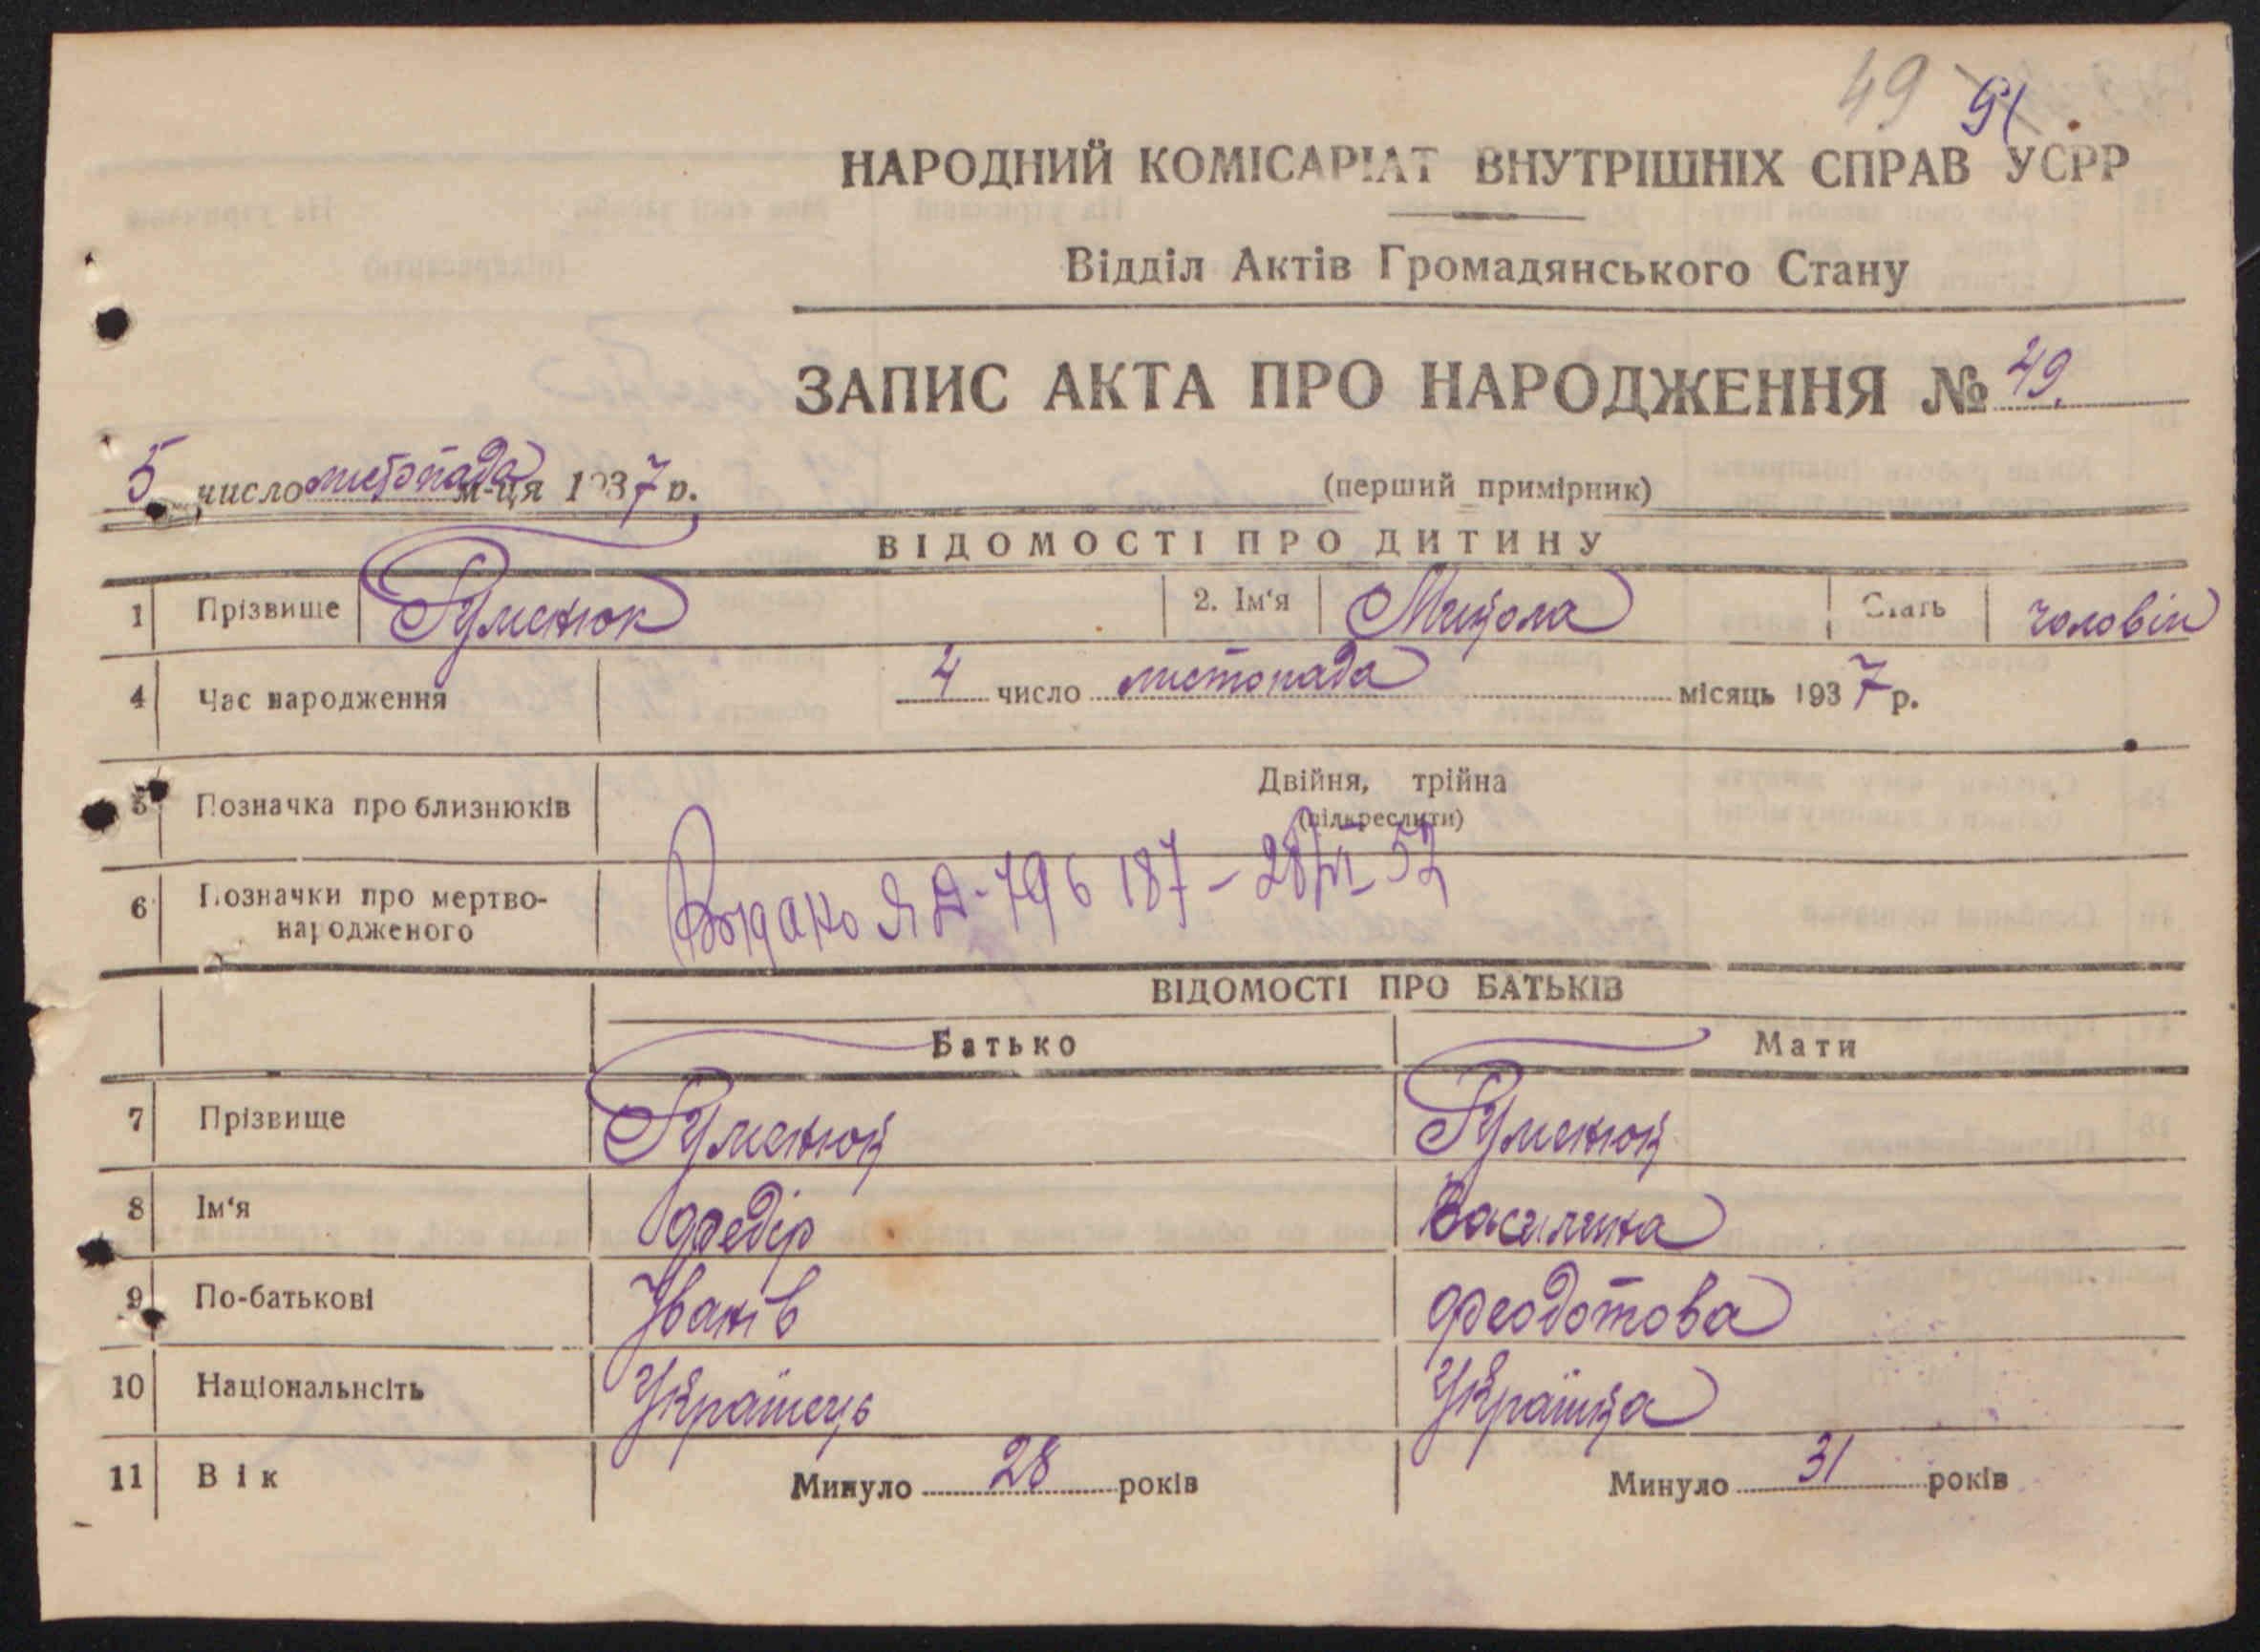 49 91
НАРОДНИЙ КОМІСАРІАТ ВНУТРІШНІХ СПРАВ УСРР
Відділ Актів Громадянського Стану
ЗАПИС АКТА ПРО НАРОДЖЕННЯ № 49.
5 число листопада м-ця 1937 р.
(перший примірник)
ВІДОМОСТІ ПРО ДИТИНУ
1 Прізвище Гуменюк 2. Ім'я Микола Стать чоловік
4 Час народження 4 число листопада місяць 1937 р.
5 Позначка про близнюків Двійня, трійна
(підкреслити)
6 Позначки про мертво-
народженого
Выдано ЯА-796187-28/VI-52
ВІДОМОСТІ ПРО БАТЬКІВ
Батько Мати
7 Прізвище Гуменюк Гуменюк
8 Ім'я Федір Василина
9 По-батькові Іванів Феодотова
10 Національнсіть Українець Українка
11 Вік Минуло 28 років Минуло 31 років